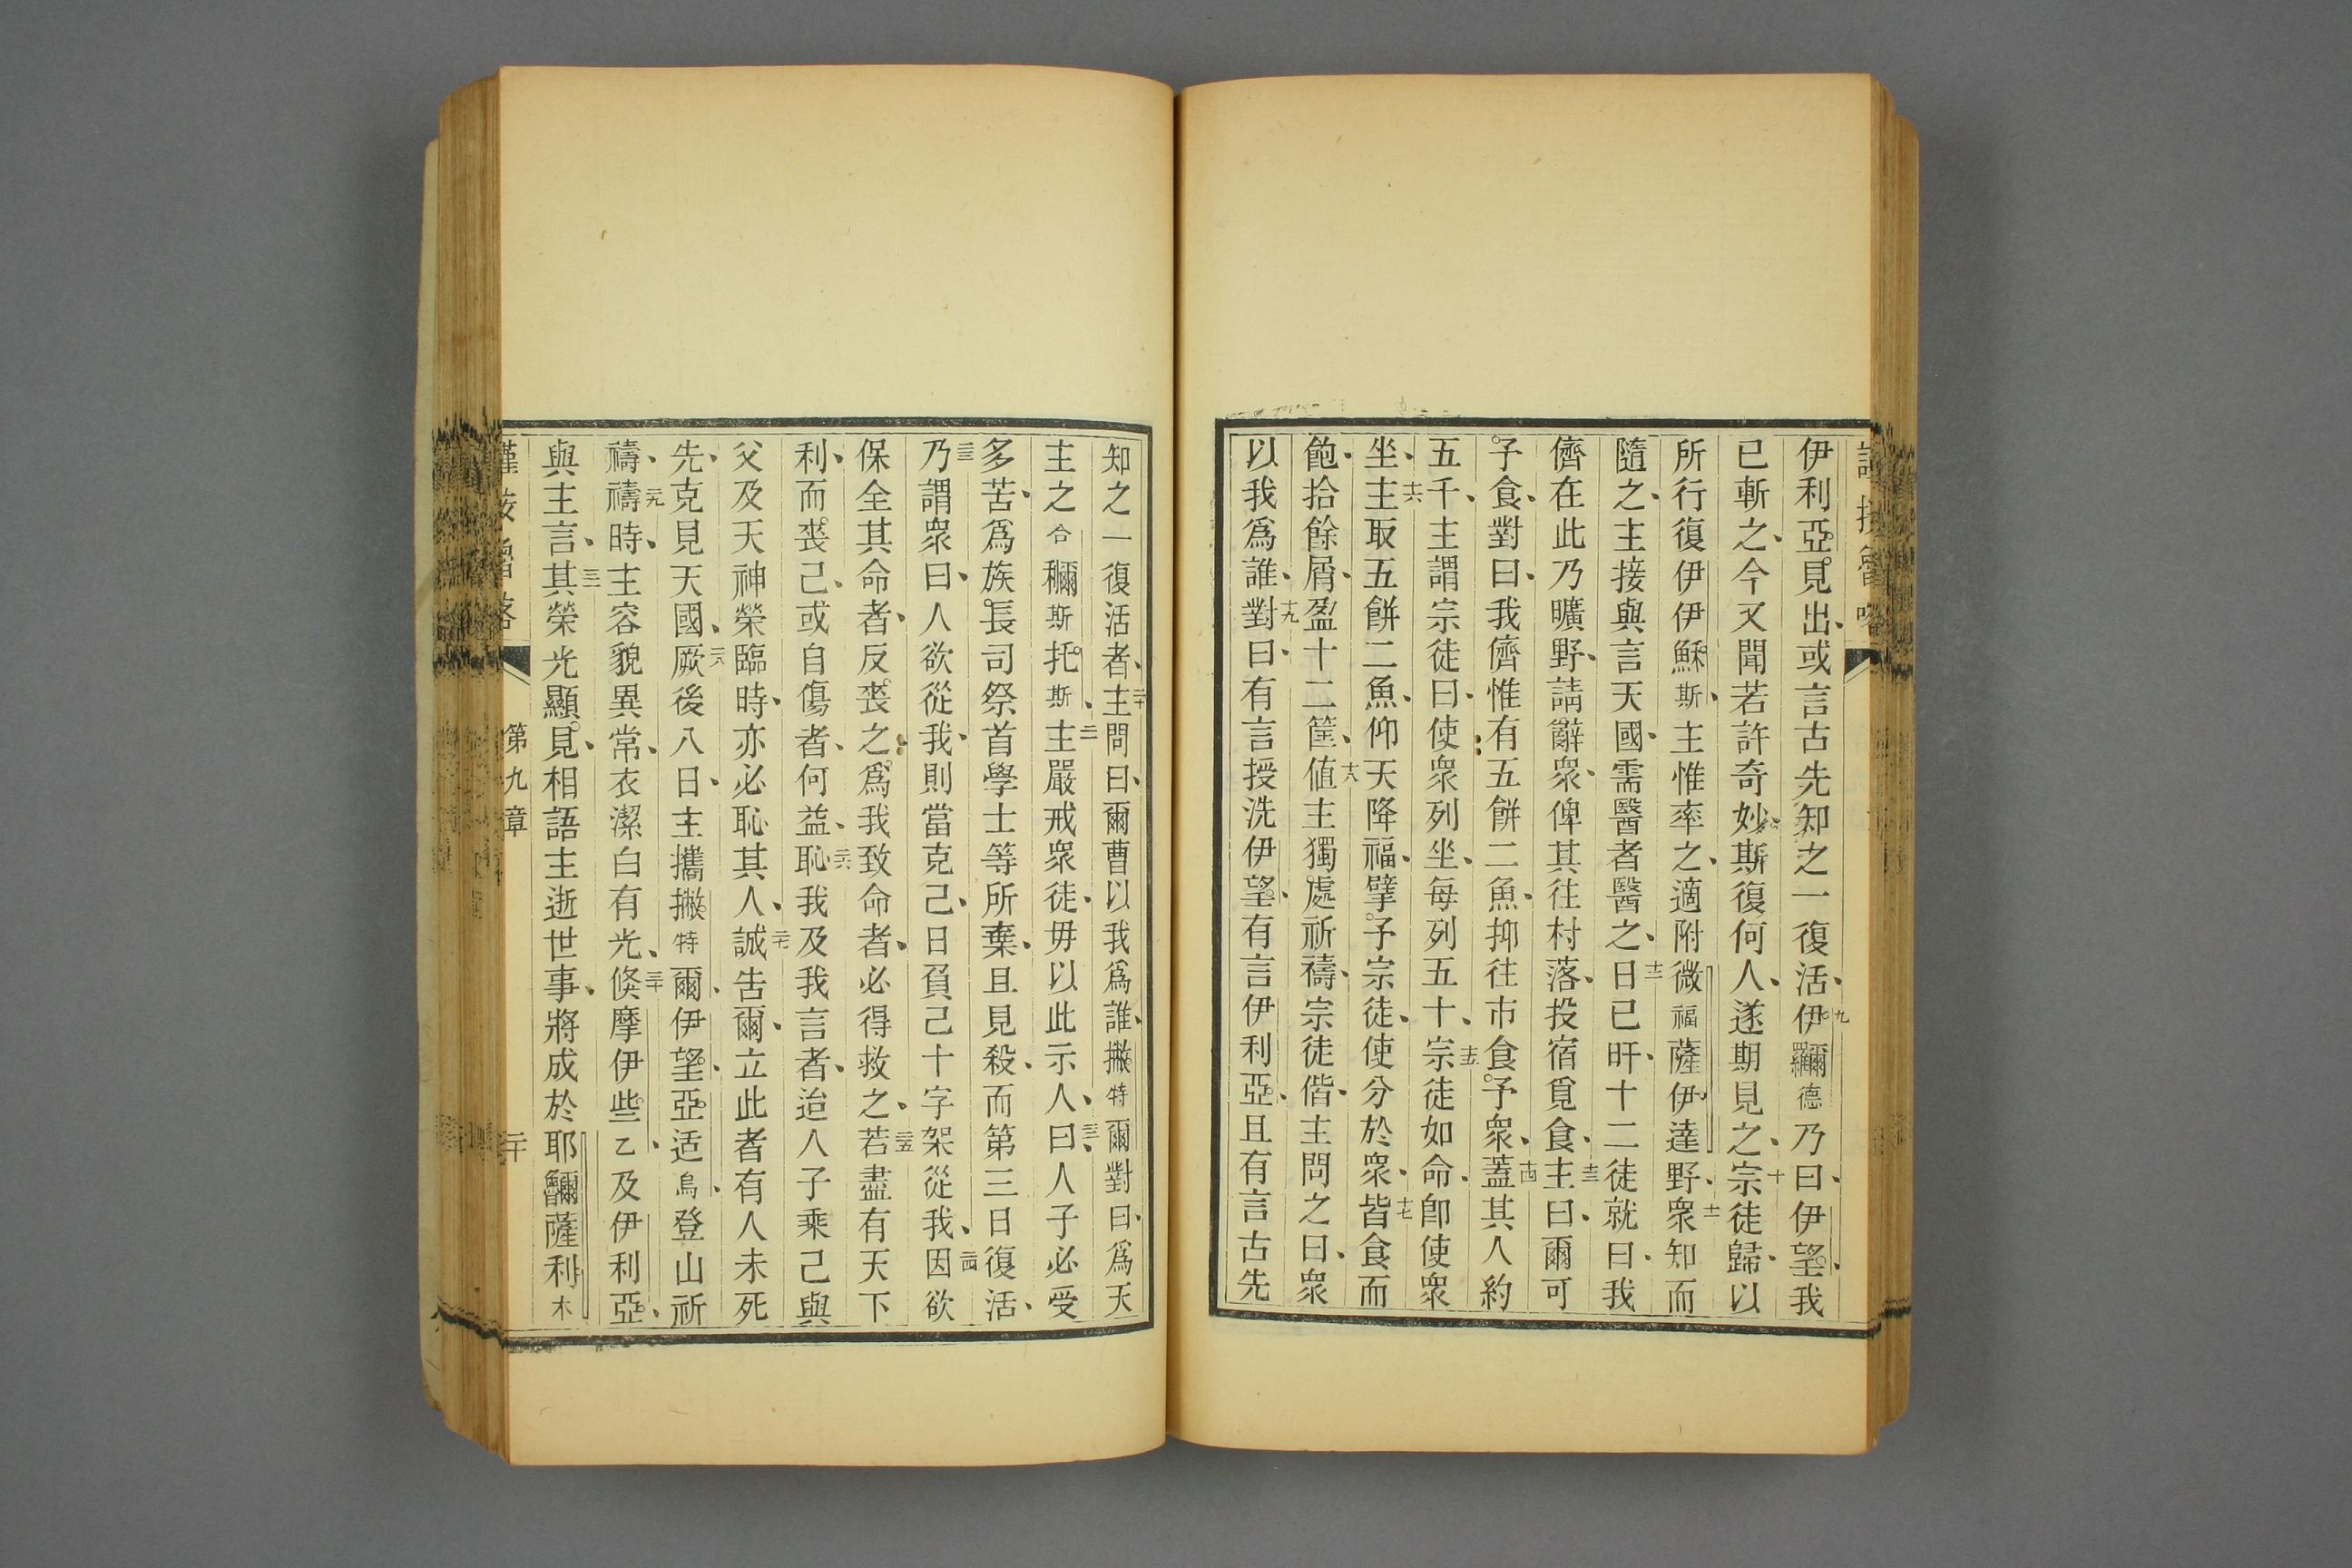 伊利亞見出、或言古先知之一復活、九伊𮉫德乃曰、伊望、我
已斬之、今又聞若許奇妙、斯復何人、遂期見之、十宗徒歸、以
所行復伊伊穌斯、主惟率之、適附微福薩伊達野、十一衆知而
隨之、主接與言天國、需醫者醫之、十二日已旰、十二徒就曰、我
儕在此乃曠野、請辭衆、俾其往村落、投宿覓食、十三主曰、爾可
予食、對曰、我儕惟有五餅二魚、抑往市食予衆、十四蓋其人約
五千、主謂宗徒曰、使衆列坐、每列五十、十五宗徒如命、卽使衆
坐、十六主取五餅二魚、仰天降福、擘予宗徒、使分於衆、十七皆食而
飽、拾餘屑、盈十二筐、十八値主獨處祈禱、宗徒偕、主問之曰、衆
以我爲誰、十九對曰、有言授洗伊望、有言伊利亞、且有言古先
知之一復活者、二十主問曰、爾曹以我爲誰、撇特爾對曰、爲天
主之合穪斯托斯、二一主嚴戒衆徒、毋以此示人、二二曰、人子必受
多苦、爲族長司祭首學士等所棄、且見殺、而第三日復活、
二三乃謂衆曰、人欲從我、則當克己、日負己十字架從我、二四因欲
保全其命者、反喪之、爲我致命者、必得救之、二五若盡有天下
利、而喪己、或自傷者、何益、二六恥我及我言者、迨人子乘己與
父及天神榮臨時、亦必恥其人、二七誠告爾、立此者有人未死
先、克見天國、二八厥後八日、主攜撇特爾、伊望、亞适烏、登山祈
禱、二九禱時、主容貌異常、衣潔白有光、三十倐摩伊些乙、及伊利亞、
與主言、三一其榮光顯見、相語主逝世事、將成於耶薩利木
第九章
二十